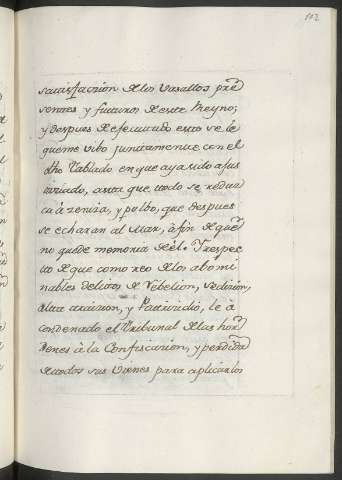 112
satisfaccion de los Vasallos pre
sentes y futuros de este Reyno;
y despues de efecutado esto se le
queme vibo juntamente con el
dho Tablado en que aya sido afus
iciado, asta que todo se redus
ca à zeniza, y polbo, que despues
se echaran al Mar, à fin de que
no quede memoria de èl. Y respec
to de que como reo de los abomi
nables delitos de Rebelion, Sedicion,
alta traicion, y Parricidio, le à
condenado el Tribunal de las hor
denes à la Confiscacion, y perdida
de todos sus Vienes para aplicarlos